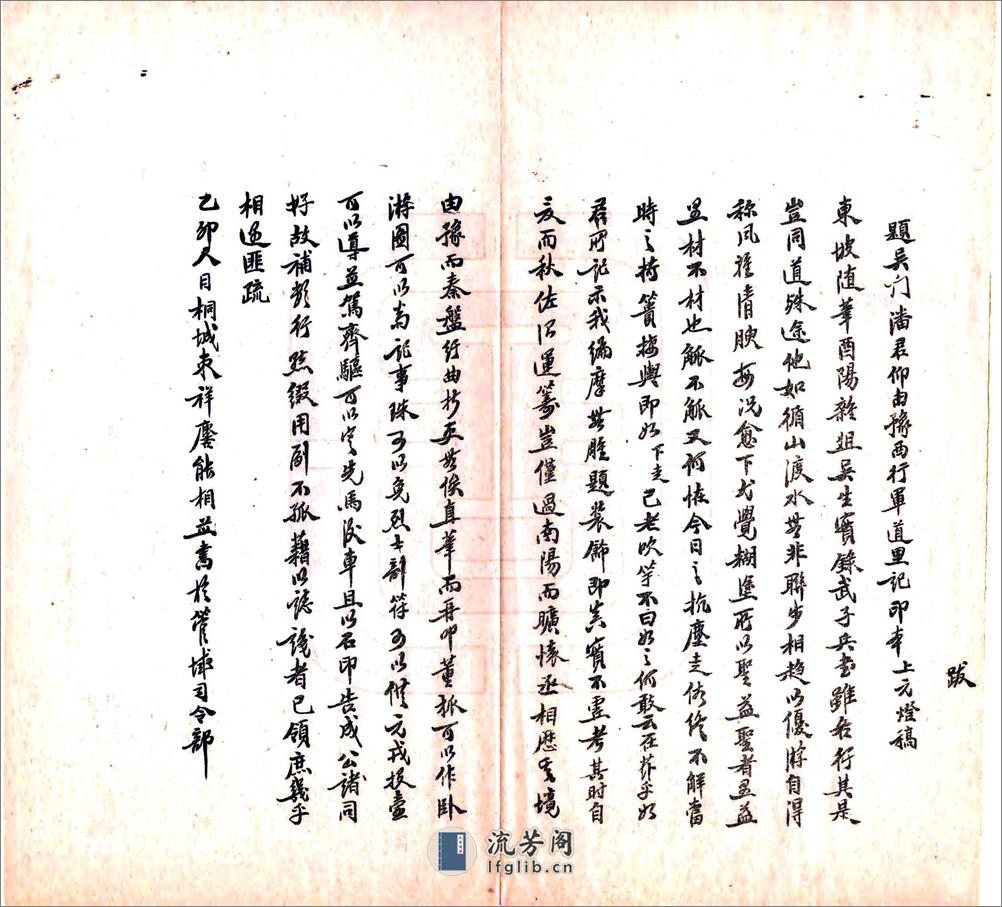 跋
題吳門潘君仰由豫西行軍道里記印本上元燈稿
東坡隨筆酉陽雜俎吳生實錄武子兵書雖各行其是
豈同道殊途他如循山渡水無非聯步相趨以優游自得
稱風雅情腴每況愈下尤覺糊塗所以聖益聖者愚益
愚材不材也觚不觚又何怪今日之抗塵走俗終不解當
時之持籌梅與即如下走已老吹竽不曰如之何敢云在茲乎如
君所記示我編摩無暇題裝飾即真實不虛考其時自
夏而秋佐沿運籌豈僅過南陽而曠懷丞相歷其境
由豫而秦盤行曲折更無俟真筆而再叩董狐可以作臥
游圖可以為記事珠可以免烈士剖符可以供元戎投壺
可以導並駕齊驅可以定先馬後車且以石印告成公諸同
好故補數行點綴用副不孤藉以誌識者已領庶幾乎
相遠匪疏
乙卯人日桐城東祥慶能相益書於管城司令部
流芳阁
lfglib.cn